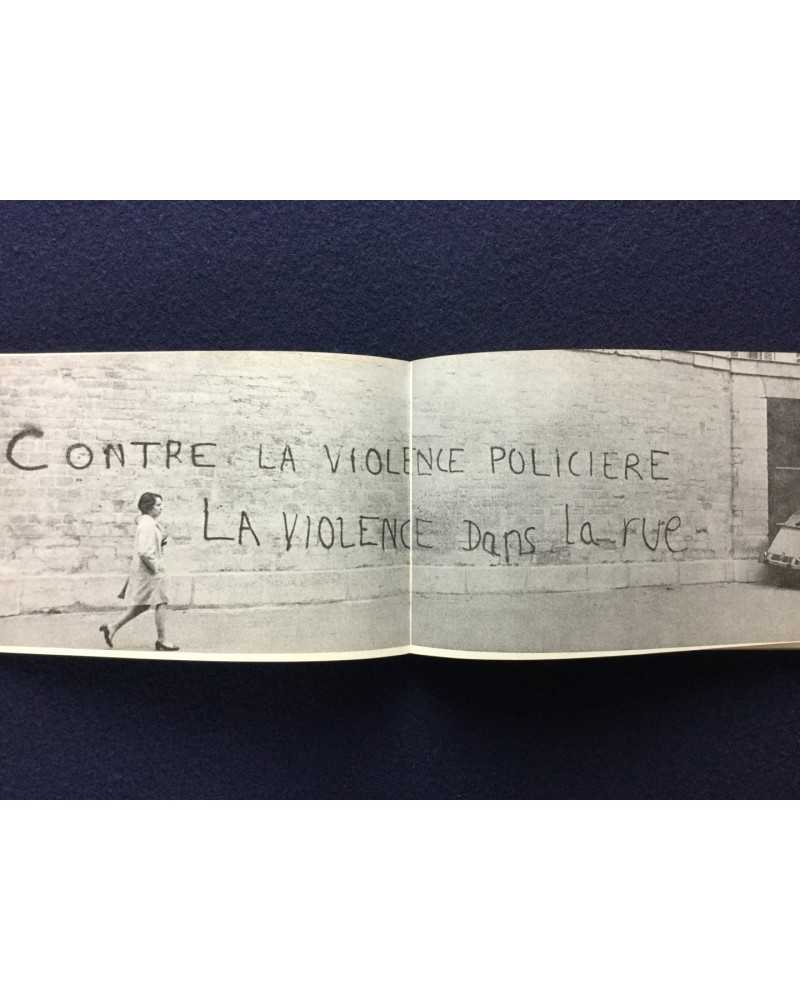 CONTRE LA VIOLENCE POLICIERE
LA VIOLENCE Dans la rue